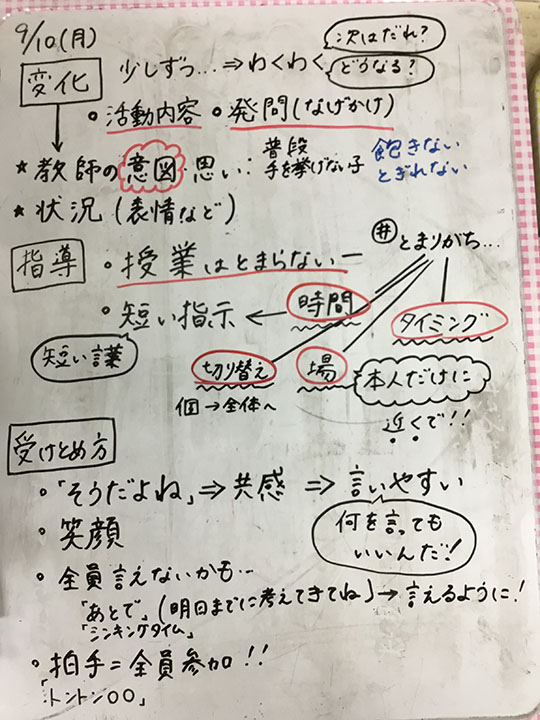 9/10(月)
変化
少しずつ…⇒わくわく
次はだれ?
どうなる?
・活動内容 ・発問(なげかけ)
★教師の意図・思い:
普段
手を挙げない子
飽きない
とぎれない
★状況(表情など)
指導
・授業はとまらないー
㊟とまりがち…
・短い指示 ← 時間
タイミング
短い言葉
切り替え
場
個→全体へ
本人だけに
近くで!!
受けとめ方
・「そうだよね」⇒共感 ⇒ 言いやすい
・笑顔
何を言っても
いいんだ!
・全員言えないかも…
「あとで」(明日までに考えてきてね)→言えるように!
「シンキングタイム」
・拍手=全員参加!!
「トントン〇〇」